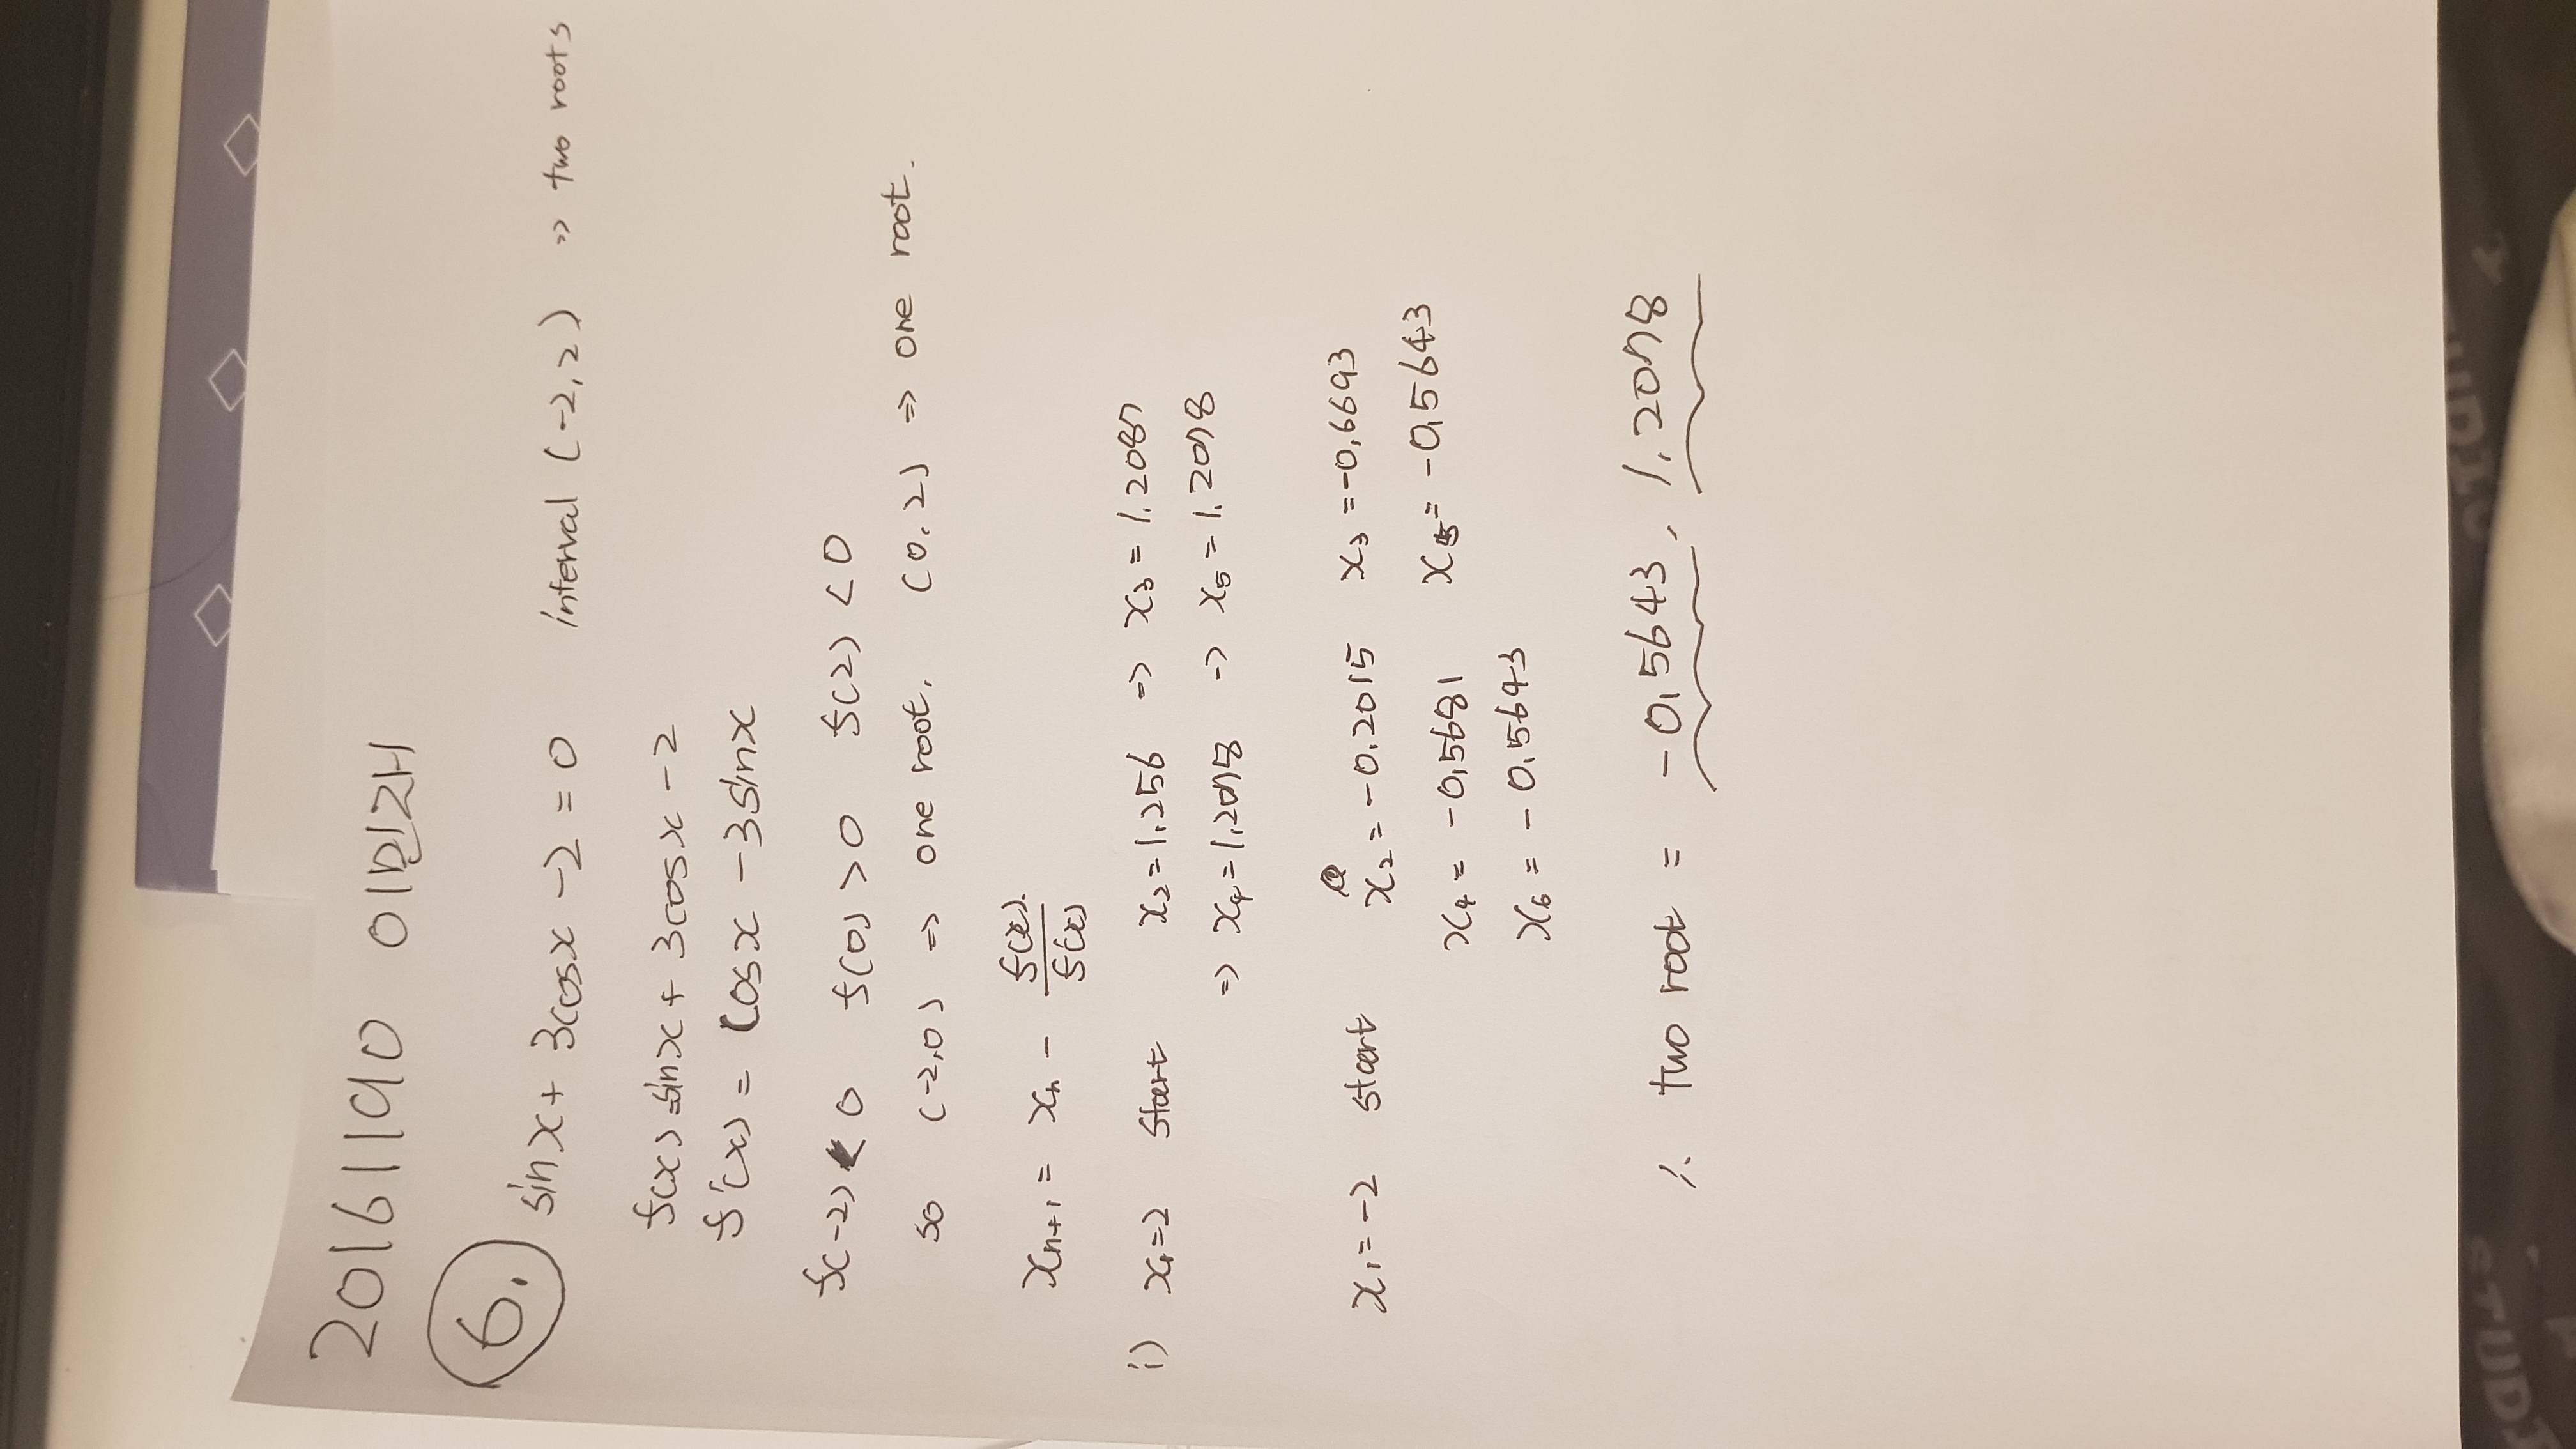 20161190 이민재
6.
sinx + 3cosx - 2 = 0 interval (-2, 2) => two roots
f(x) = sinx + 3cosx - 2
f'(x) = cosx - 3sinx
f(-2) < 0 f(0) > 0 f(2) < 0
so (-2, 0) => one root, (0, 2) => one root.
xn+1 = xn - f(x) / f'(x)
i) x1 = 2 start x2 = 1.256 => x3 = 1.2087
=> x4 = 1.2078 => x5 = 1.2078
x1 = -2 start x2 = -0.2015 x3 = -0.6693
x4 = -0.5681 x5 = -0.5643
x6 = -0.5643
∴ two root = -0.5643, 1.2078